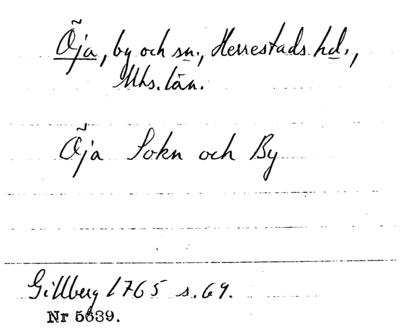 Õja, by och sn., Herrestads hd.,
Mhs. län.
Õja Sokn och By
Gillberg 1765 s. 69.
Nr 5639.